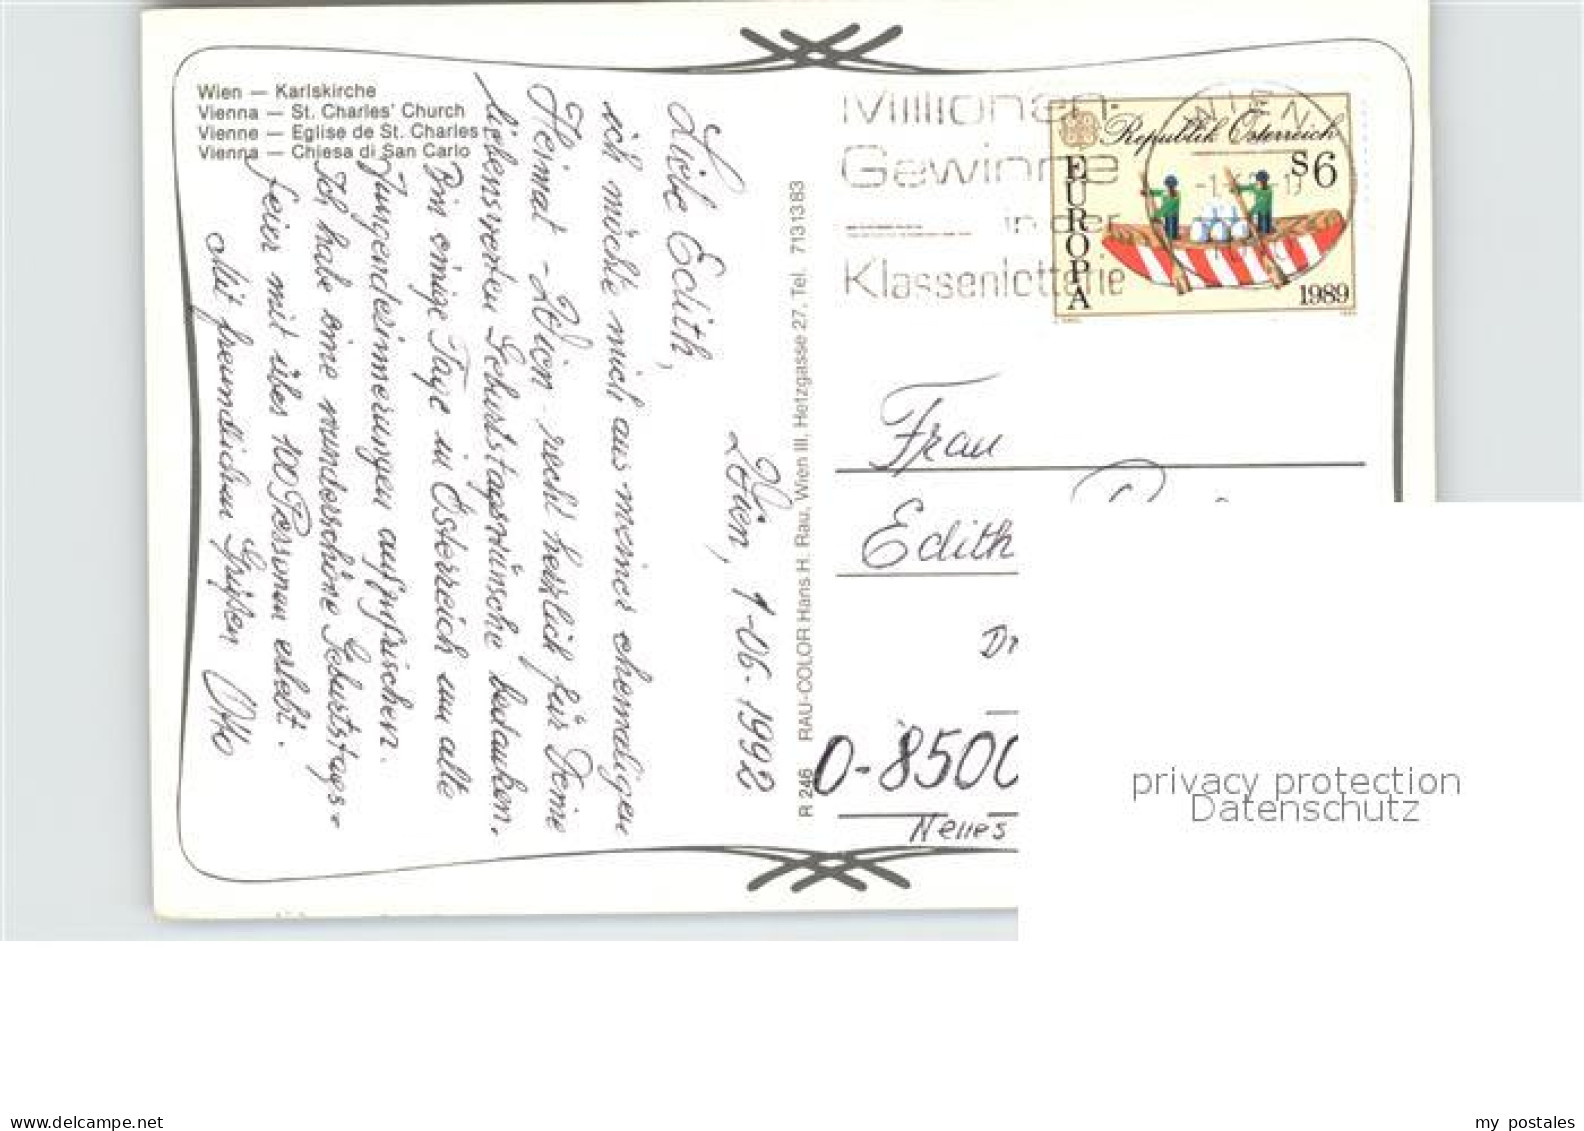 Wien — Karlskirche
Vienna — St. Charles' Church
Vienne — Eglise de St. Charles
Vienna — Chiesa di San Carlo
Wien, 1-06-1992
Liebe Edith,
ich möchte mich aus meiner ehemaligen
Heimat - Wien - recht herzlich für Deine
liebenswerten Geburtstagswünsche bedanken.
Bin einige Tage in Österreich um alte
Jungenderinnerungen aufzufrischen.
Ich habe eine wunderschöne Geburtstags=
feier mit über 100 Personen erlebt.
Mit freundlichen Grüßen Otto
R 246 RAU-COLOR Hans H. Rau, Wien III, Hetzgasse 27, Tel. 7131383
Millionen
Gewinne
in der
Klassenlotterie
WIEN
Republik Österreich
S6
EUROPA
1989
Frau
Edith
Dr
O-8500
Neues
privacy protection
Datenschutz
www.delcampe.net
my_postales